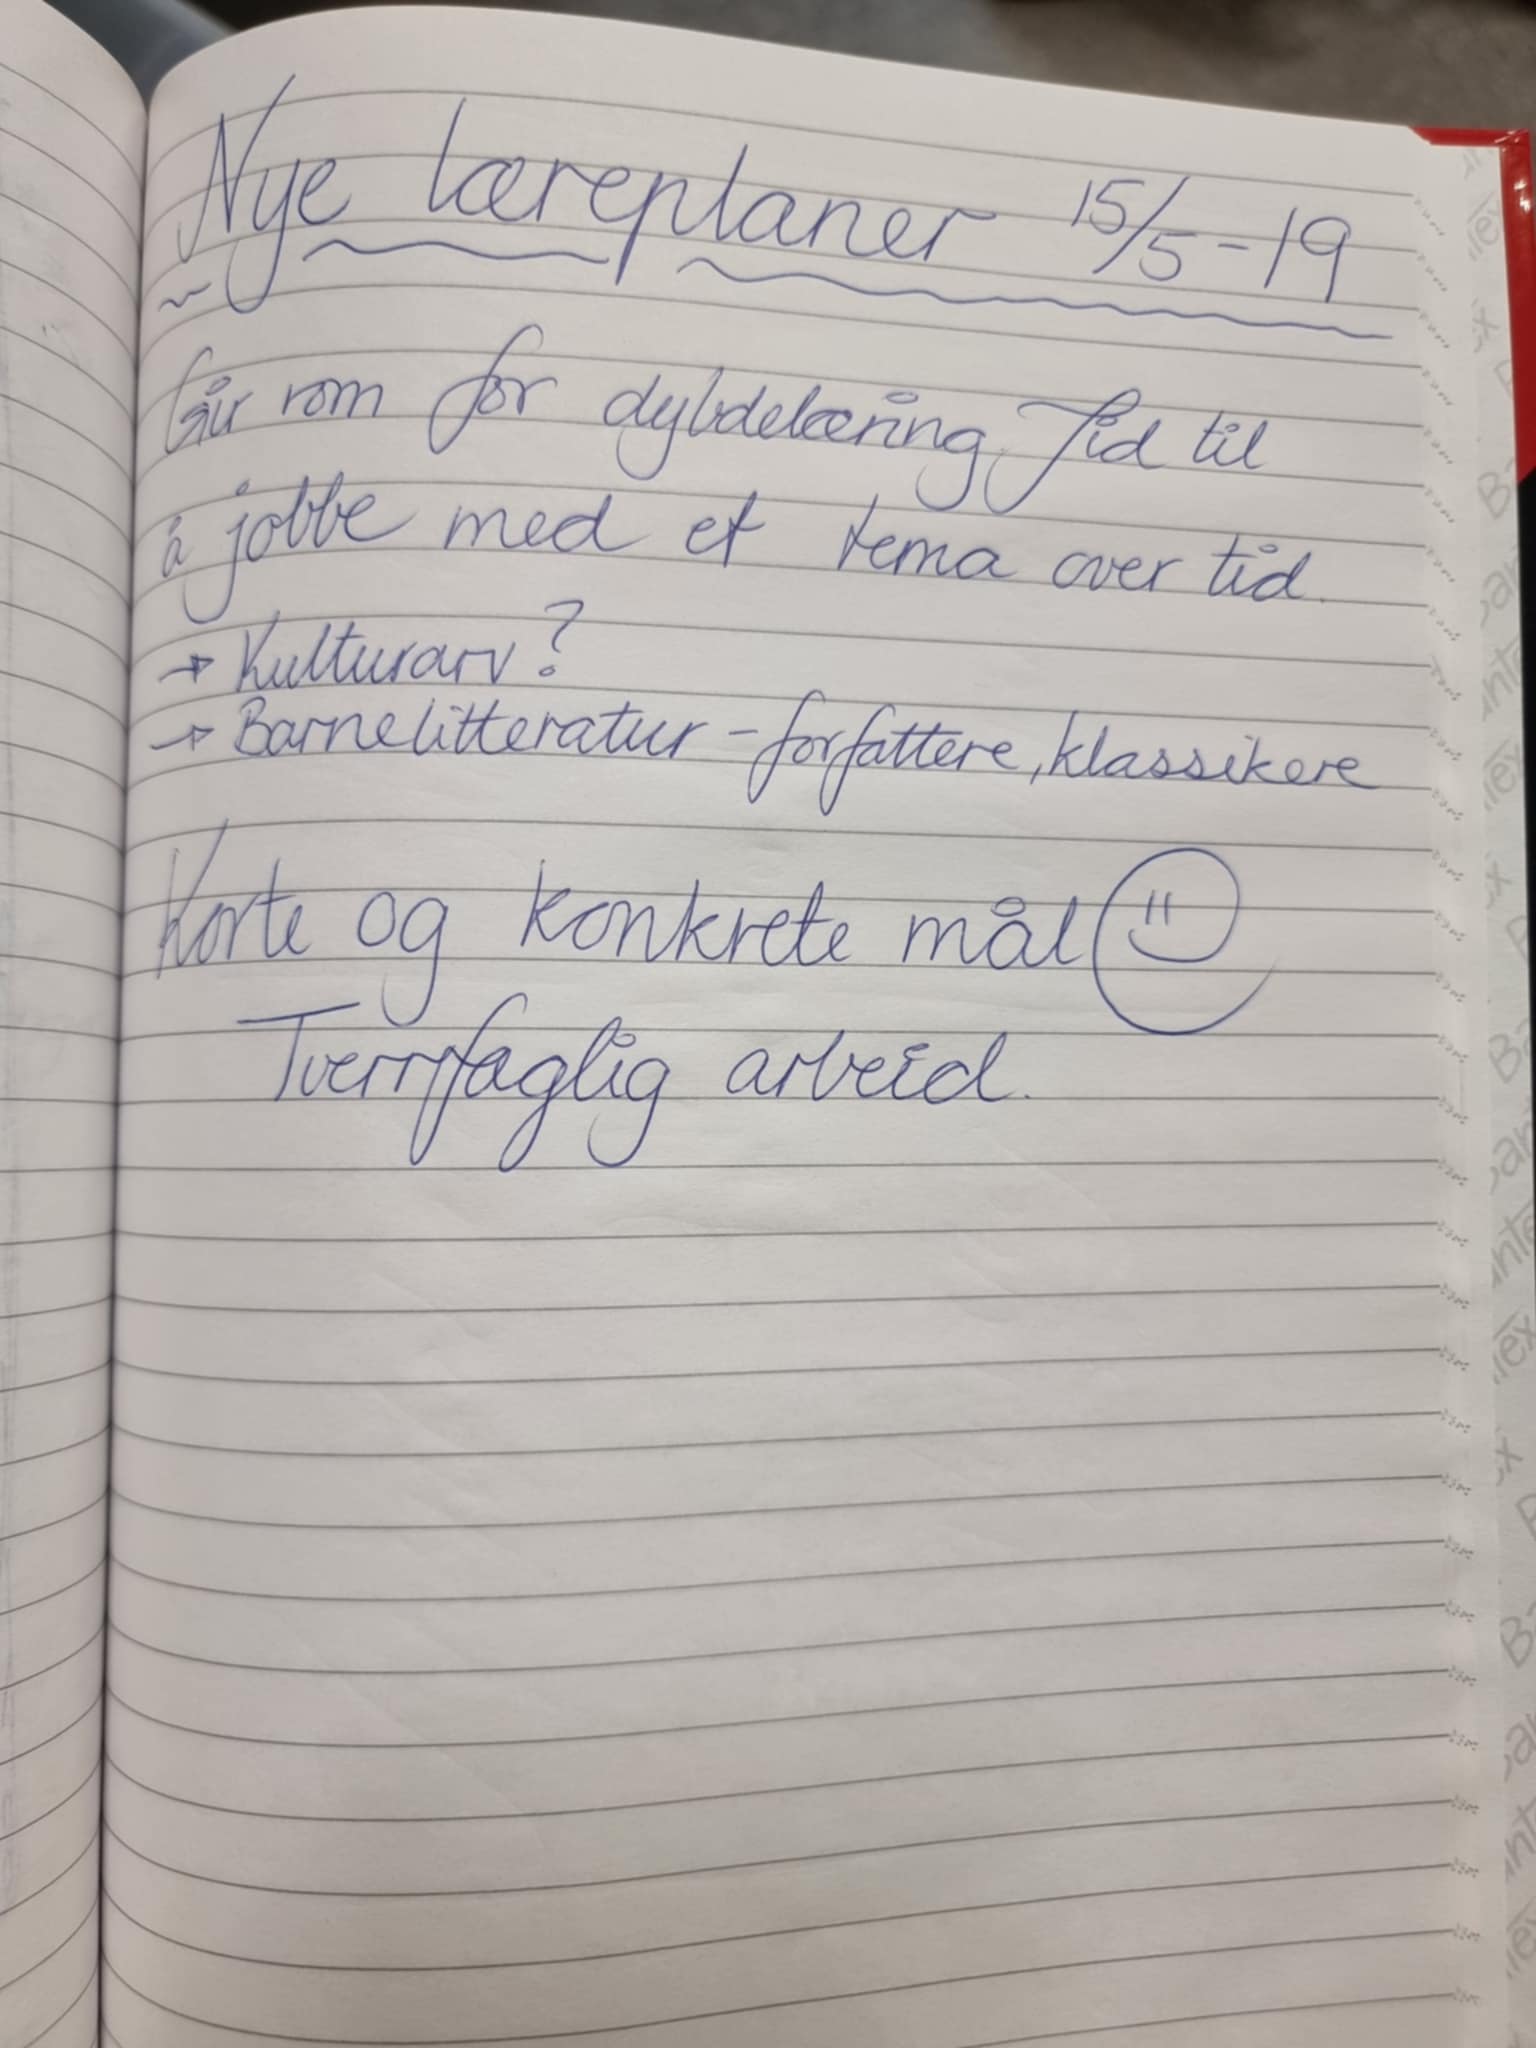 Nye læreplaner 15/5-19
Gir rom for dybdelæring. Tid til
å jobbe med et tema over tid.
→ Kulturarv?
→ Barnelitteratur - forfattere, klassikere
Korte og konkrete mål
Tverrfaglig arbeid.